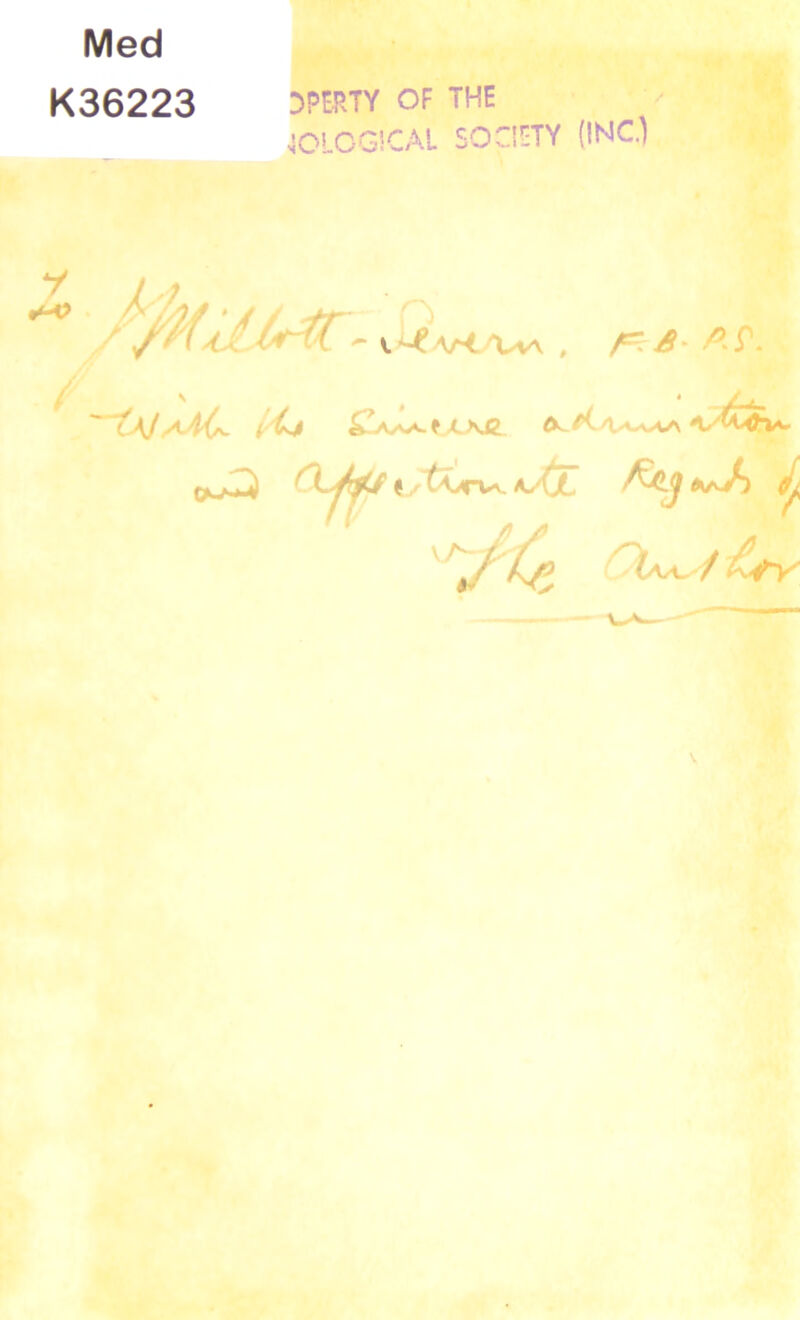 Med
K36223
OPERTY OF THE
NOLOGICAL SOCIETY (INC.)
To Millott-Severn, F.B.P.S.
With the Sincere admiration
and Affectionate Regards of
The Author